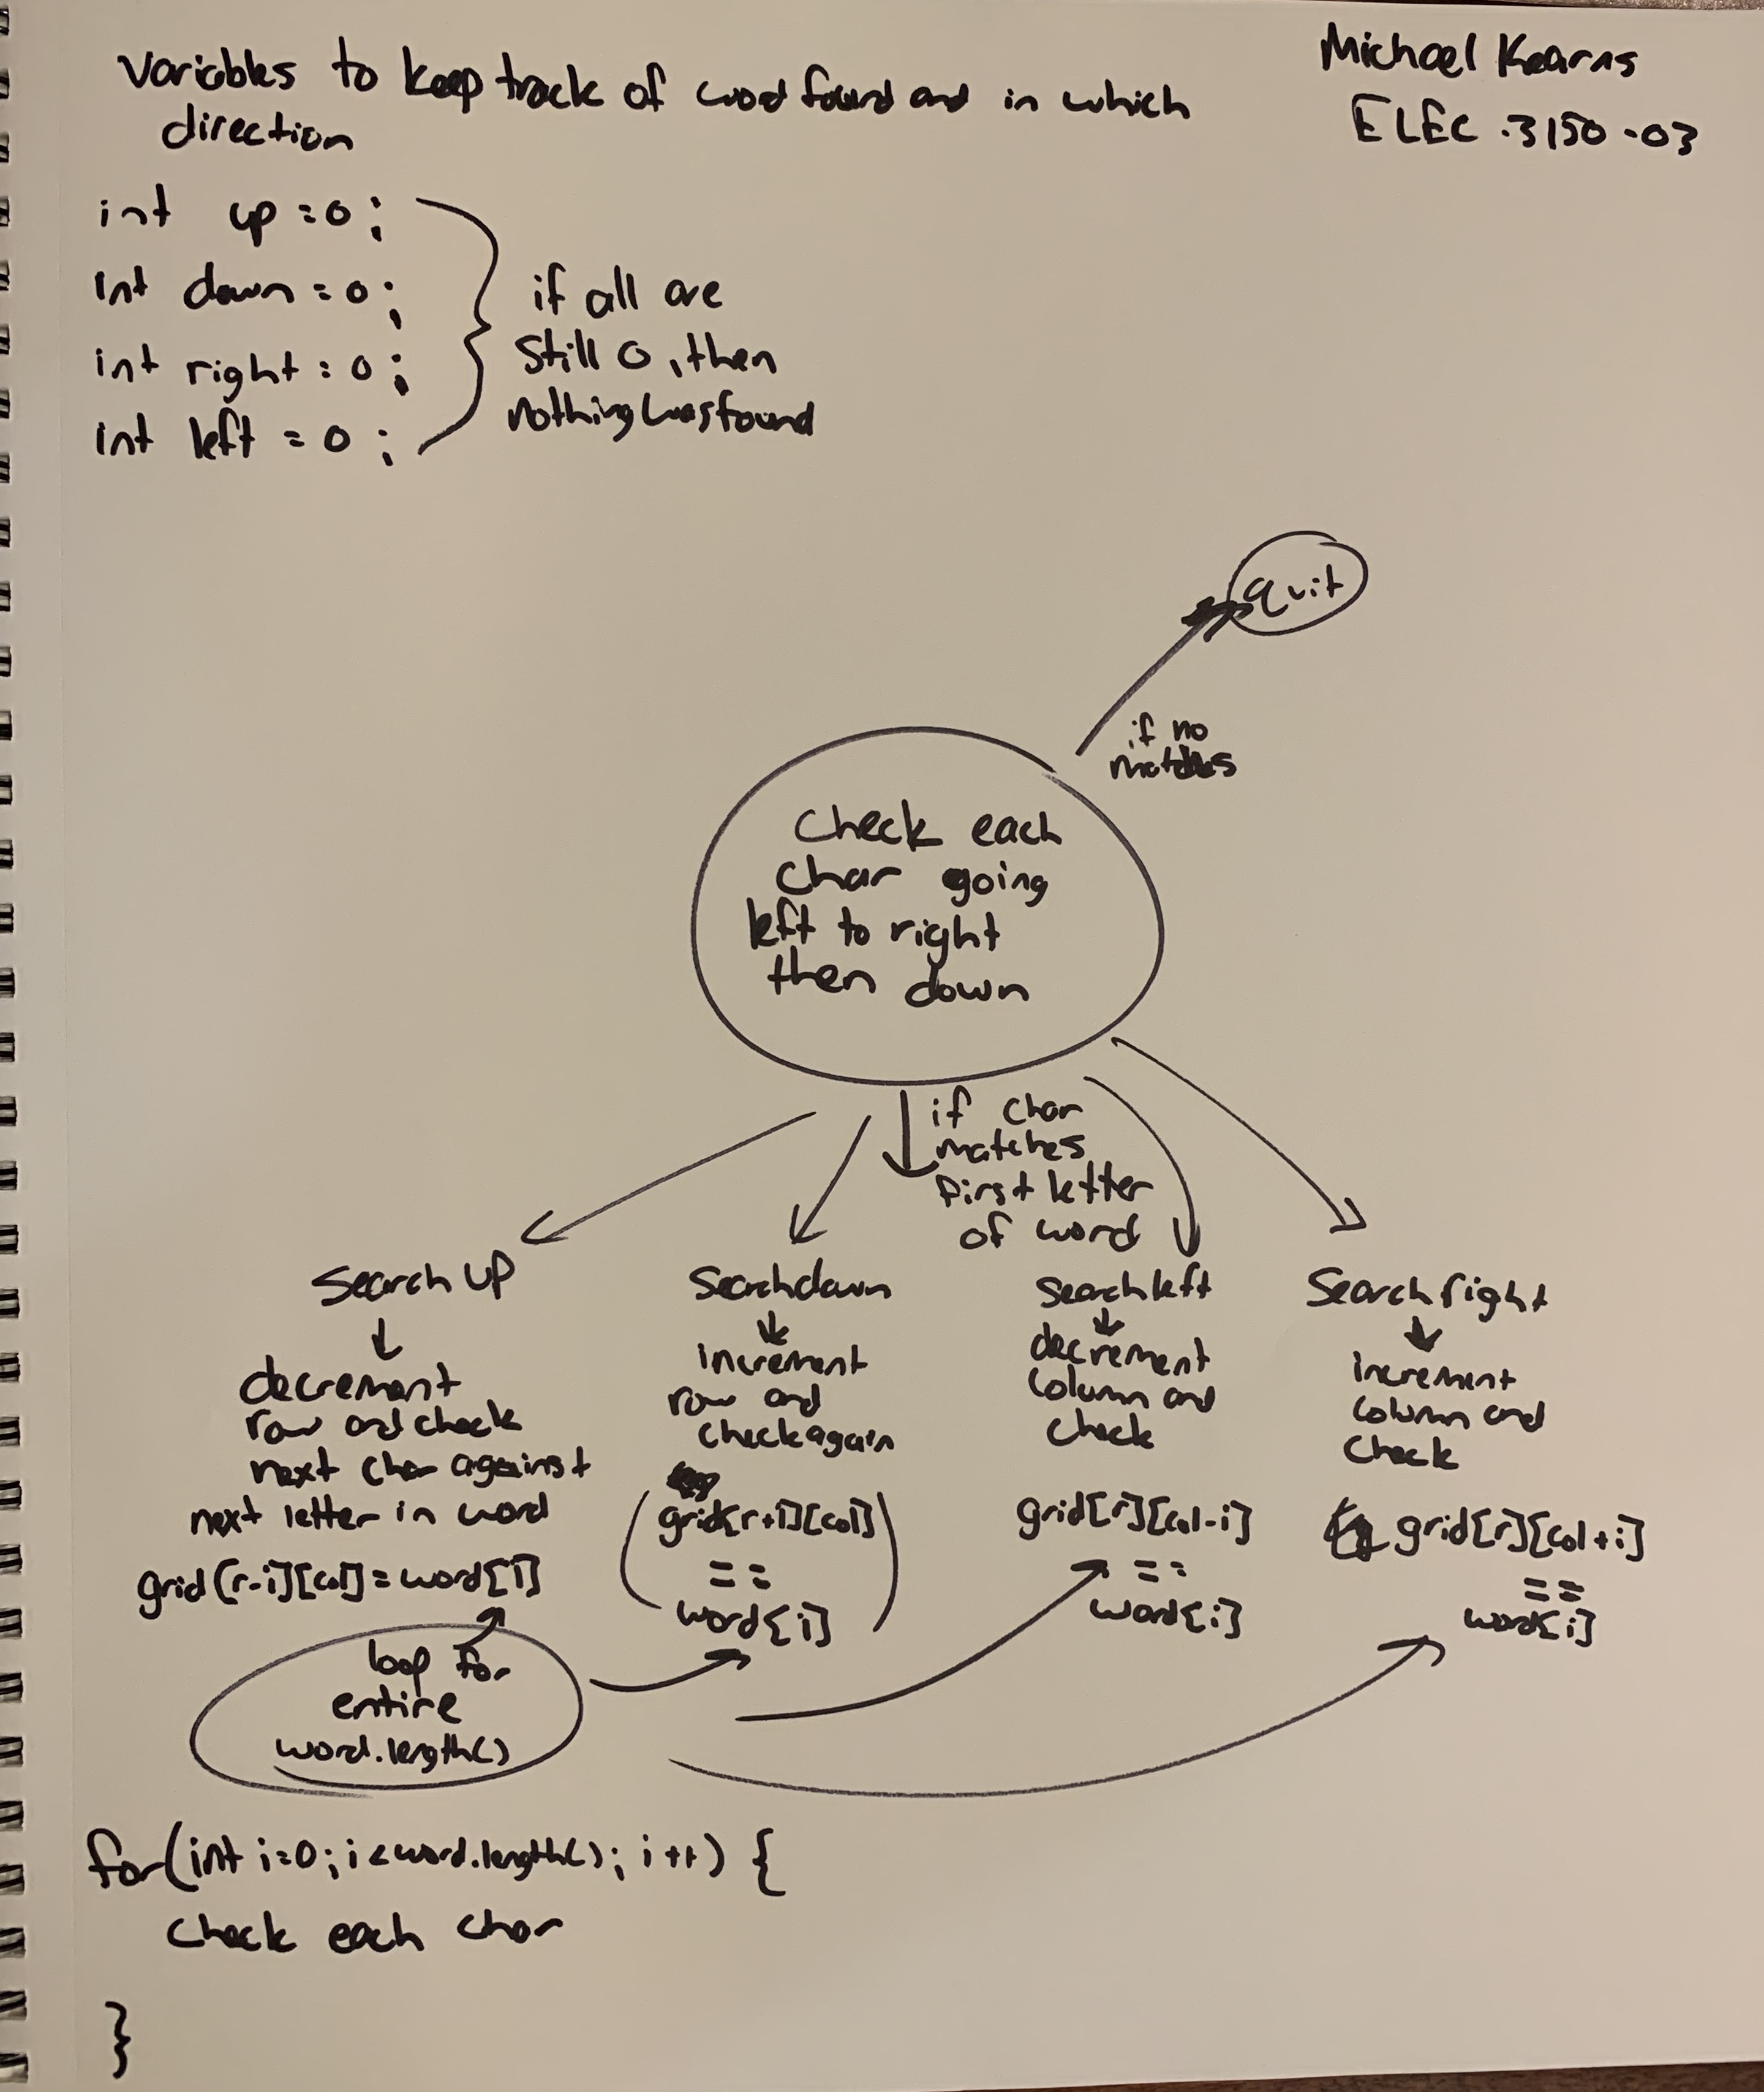 Variables to keep track of word found and in which
direction
Michael Kearns
ELEC .3150 -03
int up = 0 ;
int down = 0 ;
int right = 0 ;
int left = 0 ;
if all are
still 0, then
nothing was found
quit
if no
matches
Check each
char going
left to right
then down
if char
matches
first letter
of word
Search up
decrement
row and check
next char against
next letter in word
grid[r-i][col] = word[i]
Search down
increment
row and
check again
grid[r+i][col]
==
word[i]
Search left
decrement
column and
check
grid[r][col-i]
==
word[i]
Search right
increment
column and
check
grid[r][col+i]
==
word[i]
loop for
entire
word.length()
for(int i=0; i<word.length(); i++) {
check each char
}